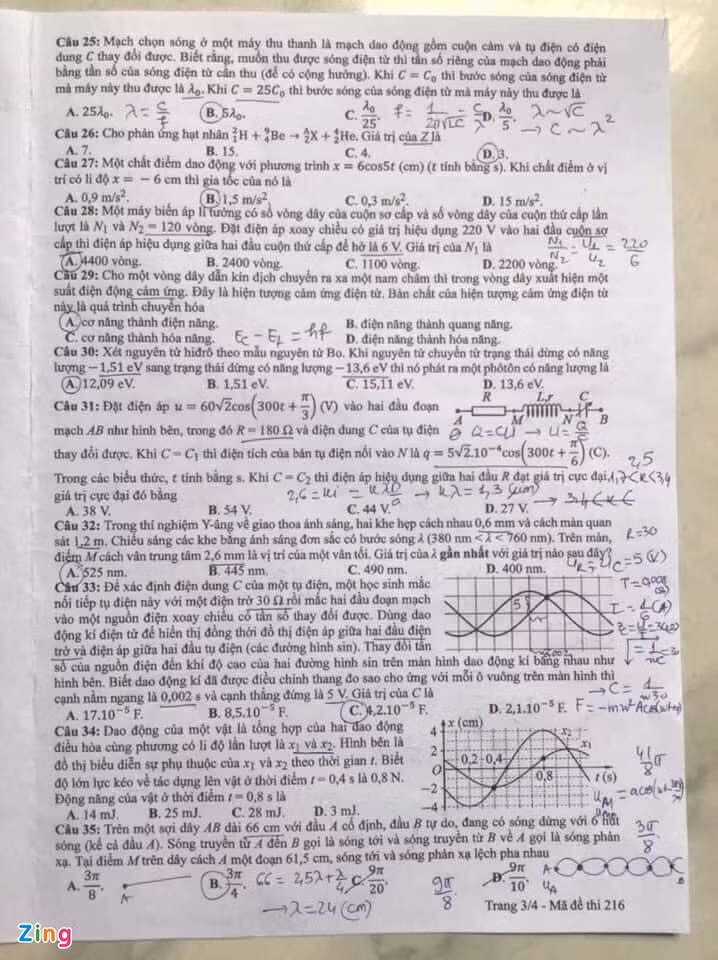 Câu 25: Mạch chọn sóng ở một máy thu thanh là mạch dao động gồm cuộn cảm và tụ điện có điện
dung C thay đổi được. Biết rằng, muốn thu được sóng điện từ thì tần số riêng của mạch dao động phải
bằng tần số của sóng điện từ cần thu (để có cộng hưởng). Khi C = C₀ thì bước sóng của sóng điện từ
mà máy này thu được là λ₀. Khi C = 25C₀ thì bước sóng của sóng điện từ mà máy này thu được là
A. 25λ₀. λ = c/f B. 5λ₀. C. λ₀/25. f = 1/2π√LC = c/λ D. λ₀/5. λ ~ √C
→ C ~ λ²
Câu 26: Cho phản ứng hạt nhân ²₁H + ⁹₄Be → ᴬ_Z X + ⁴₂He. Giá trị của Z là
A. 7. B. 15. C. 4. D. 3.
Câu 27: Một chất điểm dao động với phương trình x = 6cos5t (cm) (t tính bằng s). Khi chất điểm ở vị
trí có li độ x = − 6 cm thì gia tốc của nó là
A. 0,9 m/s². B. 1,5 m/s². C. 0,3 m/s². D. 15 m/s².
Câu 28: Một máy biến áp lí tưởng có số vòng dây của cuộn sơ cấp và số vòng dây của cuộn thứ cấp lần
lượt là N₁ và N₂ = 120 vòng. Đặt điện áp xoay chiều có giá trị hiệu dụng 220 V vào hai đầu cuộn sơ
cấp thì điện áp hiệu dụng giữa hai đầu cuộn thứ cấp để hở là 6 V. Giá trị của N₁ là
N₁/N₂ = U₁/U₂ = 220/6
A. 4400 vòng. B. 2400 vòng. C. 1100 vòng. D. 2200 vòng.
Câu 29: Cho một vòng dây dẫn kín dịch chuyển ra xa một nam châm thì trong vòng dây xuất hiện một
suất điện động cảm ứng. Đây là hiện tượng cảm ứng điện từ. Bản chất của hiện tượng cảm ứng điện từ
này là quá trình chuyển hóa
A. cơ năng thành điện năng. B. điện năng thành quang năng.
C. cơ năng thành hóa năng. D. điện năng thành hóa năng.
E_C − E_L = hf
Câu 30: Xét nguyên tử hiđrô theo mẫu nguyên tử Bo. Khi nguyên tử chuyển từ trạng thái dừng có năng
lượng −1,51 eV sang trạng thái dừng có năng lượng −13,6 eV thì nó phát ra một phôtôn có năng lượng là
A. 12,09 eV. B. 1,51 eV. C. 15,11 eV. D. 13,6 eV.
Câu 31: Đặt điện áp u = 60√2cos(300t + π/3) (V) vào hai đầu đoạn
R L,r C
A M N B
mạch AB như hình bên, trong đó R = 180 Ω và điện dung C của tụ điện
Q = CU → U = Q/C
thay đổi được. Khi C = C₁ thì điện tích của bản tụ điện nối vào N là q = 5√2.10⁻⁴cos(300t + π/6) (C).
2,5
Trong các biểu thức, t tính bằng s. Khi C = C₂ thì điện áp hiệu dụng giữa hai đầu R đạt giá trị cực đại,
1,7<k<3,4
giá trị cực đại đó bằng
2,6 = ki = kλD/a → kλ = 1,3 (μm)
A. 38 V. B. 54 V. C. 44 V. D. 27 V.
Câu 32: Trong thí nghiệm Y-âng về giao thoa ánh sáng, hai khe hẹp cách nhau 0,6 mm và cách màn quan
sát 1,2 m. Chiếu sáng các khe bằng ánh sáng đơn sắc có bước sóng λ (380 nm < λ < 760 nm). Trên màn,
R=30
điểm M cách vân trung tâm 2,6 mm là vị trí của một vân tối. Giá trị của λ gần nhất với giá trị nào sau đây?
A. 525 nm. B. 445 nm. C. 490 nm. D. 400 nm.
U_R = U_C = 5 (V)
Câu 33: Để xác định điện dung C của một tụ điện, một học sinh mắc
nối tiếp tụ điện này với một điện trở 30 Ω rồi mắc hai đầu đoạn mạch
vào một nguồn điện xoay chiều có tần số thay đổi được. Dùng dao
động kí điện tử để hiển thị đồng thời đồ thị điện áp giữa hai đầu điện
trở và điện áp giữa hai đầu tụ điện (các đường hình sin). Thay đổi tần
số của nguồn điện đến khi độ cao của hai đường hình sin trên màn hình dao động kí bằng nhau như
hình bên. Biết dao động kí đã được điều chỉnh thang đo sao cho ứng với mỗi ô vuông trên màn hình thì
cạnh nằm ngang là 0,002 s và cạnh thẳng đứng là 5 V. Giá trị của C là
→ C = 1/ω30
A. 17.10⁻⁵ F. B. 8,5.10⁻⁵ F. C. 4,2.10⁻⁵ F. D. 2,1.10⁻⁵ F.
Câu 34: Dao động của một vật là tổng hợp của hai dao động
điều hòa cùng phương có li độ lần lượt là x₁ và x₂. Hình bên là
đồ thị biểu diễn sự phụ thuộc của x₁ và x₂ theo thời gian t. Biết
độ lớn lực kéo về tác dụng lên vật ở thời điểm t = 0,4 s là 0,8 N.
Động năng của vật ở thời điểm t = 0,8 s là
A. 14 mJ. B. 25 mJ. C. 28 mJ. D. 3 mJ.
x (cm)
4
2
O
−2
−4
0,2 0,4
0,8
x₂
x₁
t (s)
Câu 35: Trên một sợi dây AB dài 66 cm với đầu A cố định, đầu B tự do, đang có sóng dừng với 6 nút
sóng (kể cả đầu A). Sóng truyền từ A đến B gọi là sóng tới và sóng truyền từ B về A gọi là sóng phản
xạ. Tại điểm M trên dây cách A một đoạn 61,5 cm, sóng tới và sóng phản xạ lệch pha nhau
A. 3π/8. B. 3π/4. 66 = 2,5λ + λ/4 C. 9π/20. 9π/8 D. 9π/10.
→ λ = 24 (cm)
Trang 3/4 - Mã đề thi 216
Zing